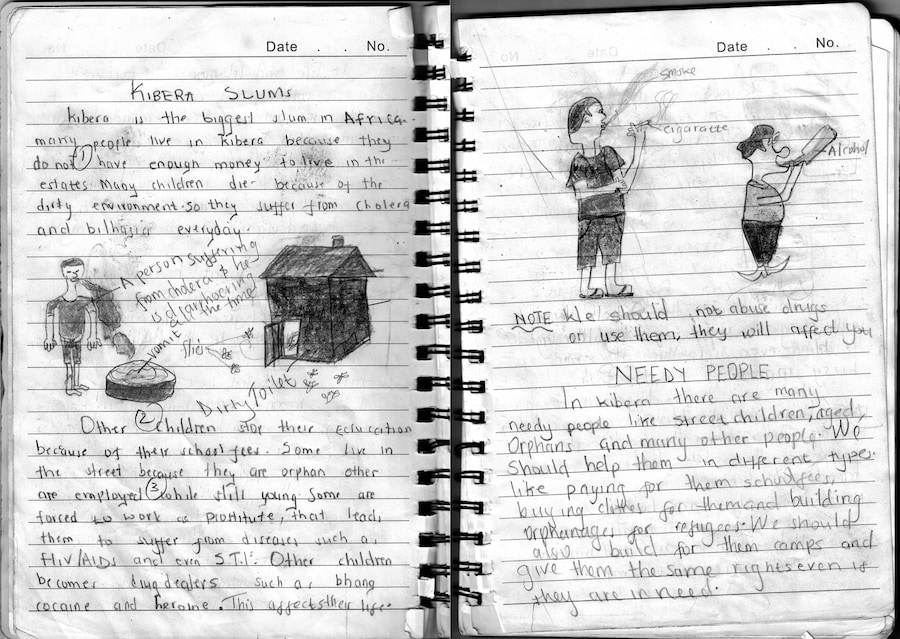 Date . . No.
KIBERA SLUMS
Kibera is the biggest slum in Africa.
many people live in kibera because they
do not 1 have enough money to live in the
estates Many children die because of the
dirty environment. so they suffer from cholera
and bilhazia everyday.
A person suffering
from cholera & he
is diarrhoering
the time
vomit
flies
Dirty Toilet
Other 2 children stop their education
because of their school fees. Some live in
the street because they are orphan other
are employed 3 while still young some are
forced to work as prostitute, that leads
them to suffer from diseases such as
HIV/AIDs and even S.T.I. Other children
becomes drug dealers such as bhang
cocaine and heroine. This affects their life.
Date . . No.
smoke
cigaratte
Alcohol
NOTE We should not abuse drugs
or use them, they will affect you
NEEDY PEOPLE
In kibera there are many
needy people like street children, aged,
Orphans and many other people. We
should help them in different type.
like paying for them school fees,
buying clothes for them and building
orphanages for refugees. We should
also build for them camps and
give them the same rights even if
they are in need.